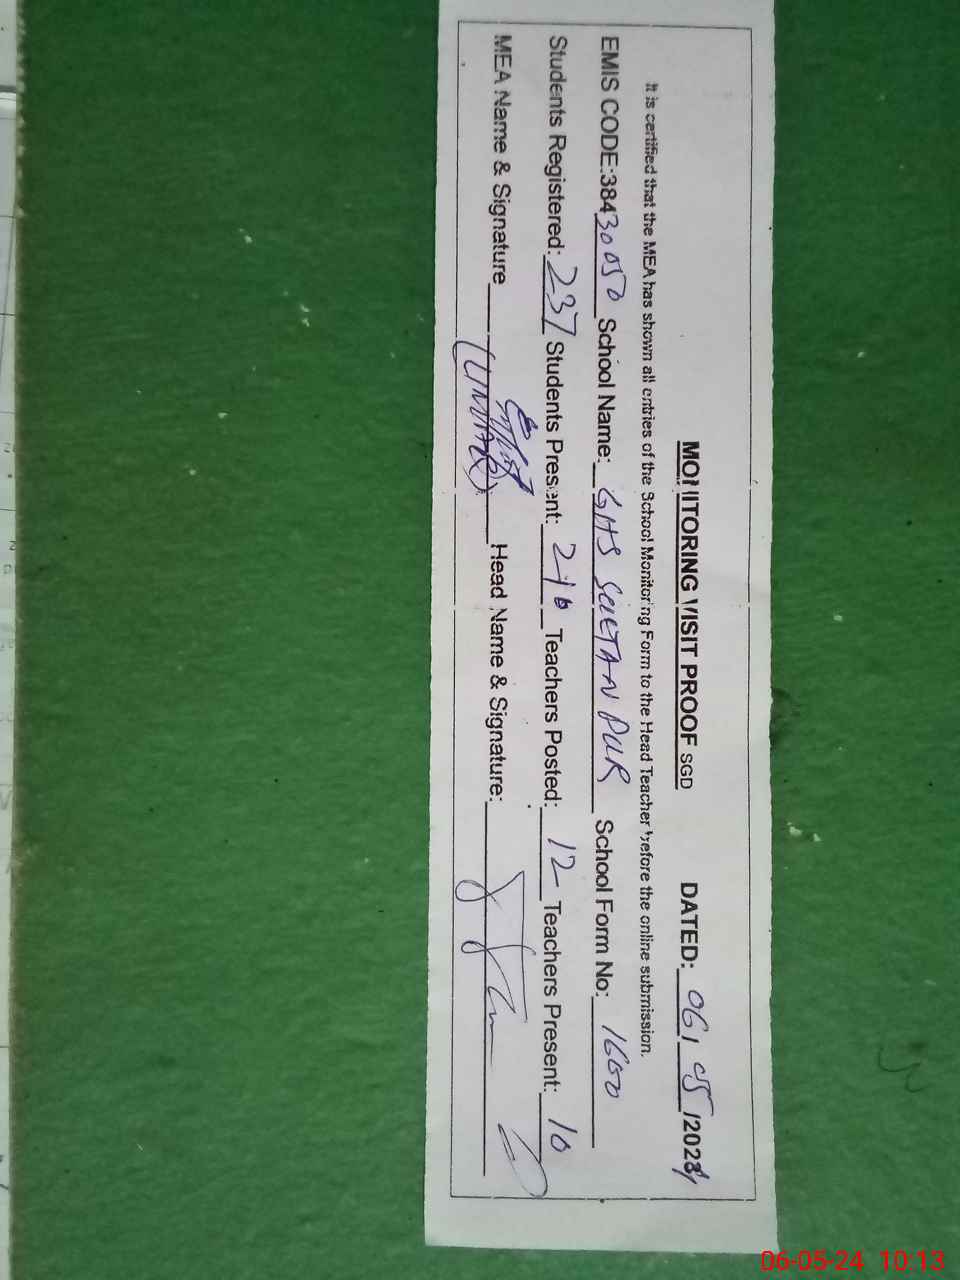 MONITORING VISIT PROOF SGD DATED: 06/05/2024
It is certified that the MEA has shown all entries of the School Monitoring Form to the Head Teacher before the online submission.
EMIS CODE:38430050 School Name: GHS SULTAN PUR School Form No: 1600
Students Registered: 237 Students Present: 216 Teachers Posted: 12 Teachers Present: 10
MEA Name & Signature (UMAR) Head Name & Signature:
06-05-24 10:13